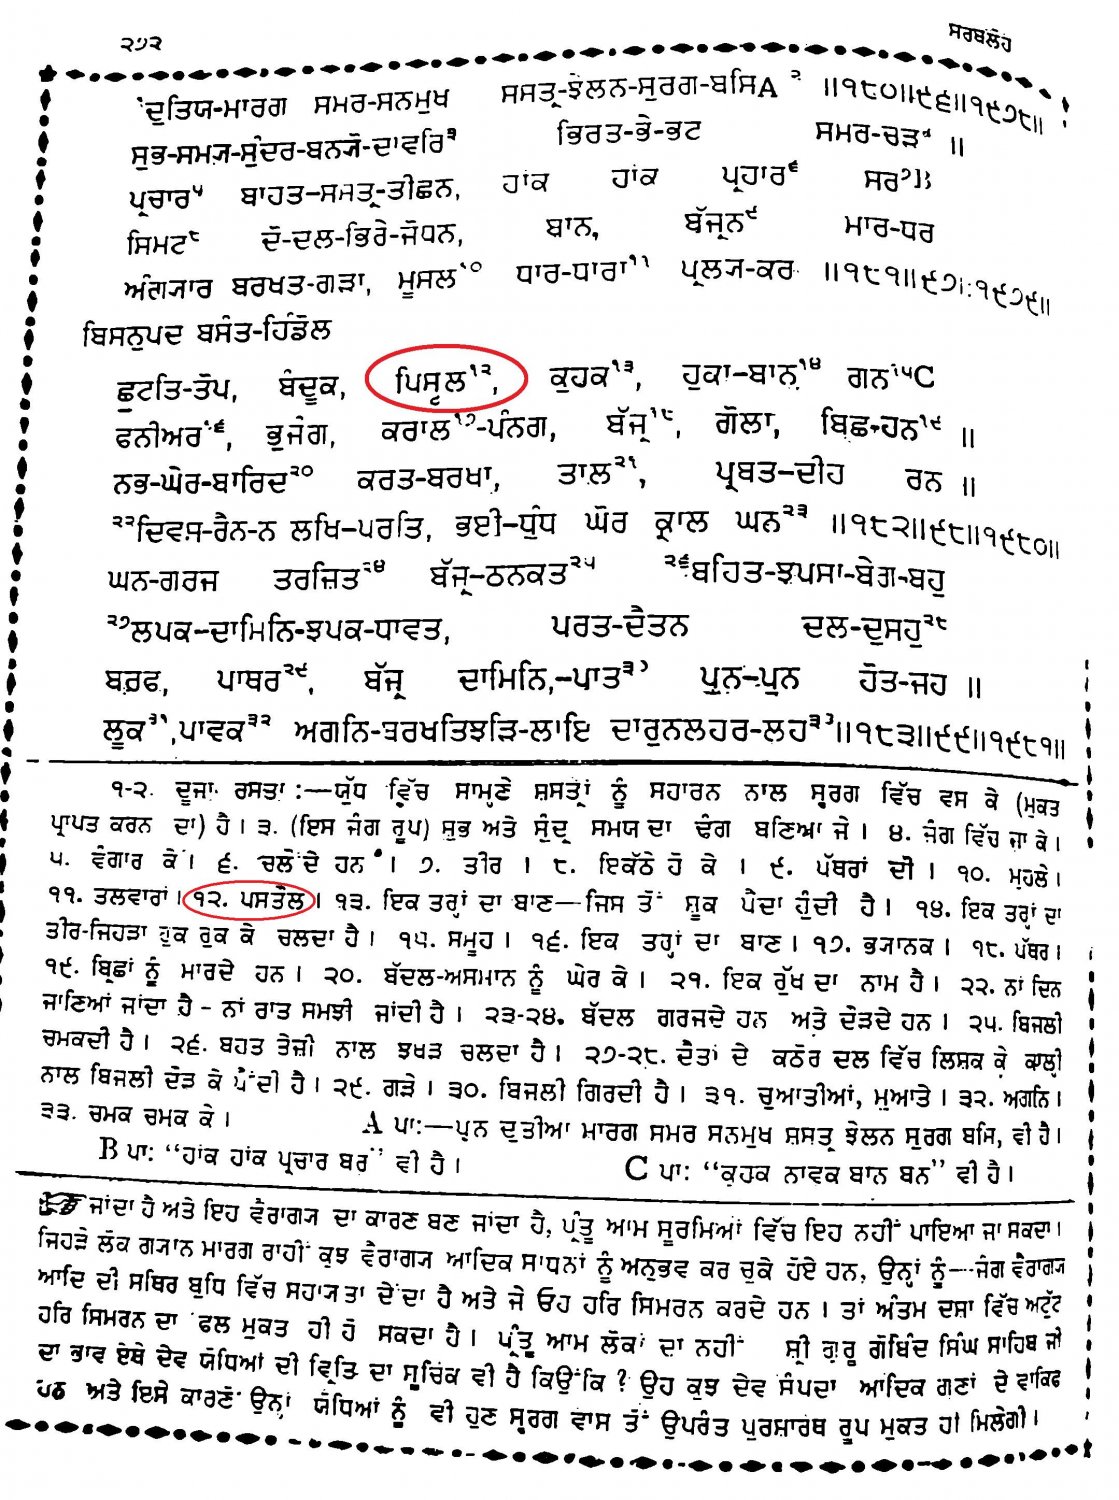 ੨੭੨
ਸਰਬਲੋਹ
ਦੁਤਿਯ-ਮਾਰਗ ਸਮਰ-ਸਨਮੁਖ ਸਸਤ੍ਰ-ਝੇਲਨ-ਸੁਰਗ-ਬਸਿA ੨ ॥੧੮੦॥੯੬॥੧੯੭੮॥
ਸੁਭ-ਸਮਯ-ਸੁੰਦਰ-ਬਨਯੋ-ਦਾਵਰਿ੩ ਭਿਰਤ-ਭੇ-ਭਟ ਸਮਰ-ਚੜ੪ ॥
ਪ੍ਰਚਾਰ੫ ਬਾਹਤ-ਸਸਤ੍ਰ-ਤੀਛਨ, ਹਾਂਕ ਹਾਂਕ ਪ੍ਰਹਾਰ੬ ਸਰ੭B
ਸਿਮਟ੮ ਦੋ-ਦਲ-ਭਿਰੇ-ਜੋਧਨ, ਬਾਨ, ਬੱਜ੍ਰਨ੯ ਮਾਰ-ਧਰ
ਅੰਗ੍ਯਾਰ ਬਰਖਤ-ਗੜਾ, ਮੂਸਲ੧੦ ਧਾਰ-ਧਾਰਾ੧੧ ਪ੍ਰਲ੍ਯ-ਕਰ ॥੧੮੧॥੯੭॥੧੯੭੯॥
ਬਿਸਨੁਪਦ ਬਸੰਤ-ਹਿੰਡੋਲ
ਛੁਟਤਿ-ਤੋਪ, ਬੰਦੂਕ, ਪਿਸ੍ਤੂਲ੧੨, ਕੁਹਕ੧੩, ਹੁਕਾ-ਬਾਨ੧੪ ਗਨ੧੫C
ਫਨੀਅਰ੧੬, ਭੁਜੰਗ, ਕਰਾਲ੧੭-ਪੰਨਗ, ਬੱਜ੍ਰ੧੮, ਗੋਲਾ, ਬ੍ਰਿਛ-ਹਨ੧੯ ॥
ਨਭ-ਘੇਰ-ਬਾਰਿਦ੨੦ ਕਰਤ-ਬਰਖਾ, ਤਾਲ੨੧, ਪ੍ਰਬਤ-ਦੀਹ ਰਨ ॥
੨੨ਦਿਵਸ-ਰੈਨ-ਨ ਲਖਿ-ਪਰਤਿ, ਭਈ-ਧੁੰਧ ਘੋਰ ਕ੍ਰਾਲ ਘਨ੨੩ ॥੧੮੨॥੯੮॥੧੯੮੦॥
ਘਨ-ਗਰਜ ਤਰਜ਼ਿਤ੨੪ ਬੱਜ੍ਰ-ਠਨਕਤ੨੫ ੨੬ਬਹਿਤ-ਝਪਸਾ-ਬੇਗ-ਬਹੁ
੨੭ਲਪਕ-ਦਾਮਿਨਿ-ਝਪਕ-ਧਾਵਤ, ਪਰਤ-ਦੈਤਨ ਦਲ-ਦੁਸਹੁ੨੮
ਬਰਫ਼, ਪਾਥਰ੨੯, ਬੱਜ੍ਰ ਦਾਮਿਨਿ,-ਪਾਤ੩੦ ਪੁਨ-ਪੁਨ ਹੋਤ-ਜਹ ॥
ਲੂਕ੩੧,ਪਾਵਕ੩੨ ਅਗਨਿ-ਬਰਖਤਿਝੜਿ-ਲਾਇ ਦਾਰੁਨਲਹਰ-ਲਹ੩੩॥੧੮੩॥੯੯॥੧੯੮੧॥
੧-੨. ਦੂਜਾ ਰਸਤਾ :—ਯੁੱਧ ਵ੍ਵਿੱਚ ਸਾਮ੍ਹਣੇ ਸ਼ਸਤ੍ਰਾਂ ਨੂੰ ਸਹਾਰਨ ਨਾਲ ਸੁਰਗ ਵਿੱਚ ਵਸ ਕੇ (ਮੁਕਤ
ਪ੍ਰਾਪਤ ਕਰਨ ਦਾ) ਹੈ। ੩. (ਇਸ ਜੰਗ ਰੂਪ) ਸੁਭ ਅਤੇ ਸੁੰਦ੍ਰ ਸਮਯ ਦਾ ਢੰਗ ਬਣਿਆ ਜੇ। ੪. ਜੰਗ ਵਿੱਚ ਜਾ ਕੇ।
੫. ਵੰਗਾਰ ਕੇ। ੬. ਚਲੌਂਦੇ ਹਨ। ੭. ਤੀਰ। ੮. ਇਕੱਠੇ ਹੋ ਕੇ। ੯. ਪੱਥਰਾਂ ਦੀ। ੧੦. ਮੁਹਲੇ।
੧੧. ਤਲਵਾਰਾਂ। ੧੨. ਪਸਤੌਲ। ੧੩. ਇਕ ਤਰ੍ਹਾਂ ਦਾ ਬਾਣ—ਜਿਸ ਤੋਂ ਸ਼ੂਕ ਪੈਦਾ ਹੁੰਦੀ ਹੈ। ੧੪. ਇਕ ਤਰ੍ਹਾਂ ਦਾ
ਤੀਰ-ਜਿਹੜਾ ਰੁਕ ਰੁਕ ਕੇ ਚਲਦਾ ਹੈ। ੧੫. ਸਮੂਹ। ੧੬. ਇਕ ਤਰ੍ਹਾਂ ਦਾ ਬਾਣ। ੧੭. ਭਯਾਨਕ। ੧੮. ਪੱਥਰ।
੧੯. ਬ੍ਰਿਛਾਂ ਨੂੰ ਮਾਰਦੇ ਹਨ। ੨੦. ਬੱਦਲ-ਅਸਮਾਨ ਨੂੰ ਘੇਰ ਕੇ। ੨੧. ਇਕ ਰੁੱਖ ਦਾ ਨਾਮ ਹੈ। ੨੨. ਨਾਂ ਦਿਨ
ਜਾਣਿਆਂ ਜਾਂਦਾ ਹੈ - ਨਾਂ ਰਾਤ ਸਮਝੀ ਜਾਂਦੀ ਹੈ। ੨੩-੨੪. ਬੱਦਲ ਗਰਜਦੇ ਹਨ ਅਤੇ ਦੌੜਦੇ ਹਨ। ੨੫. ਬਿਜਲੀ
ਚਮਕਦੀ ਹੈ। ੨੬. ਬਹਤ ਤੇਜ਼ੀ ਨਾਲ ਝਖੜ ਚਲਦਾ ਹੈ। ੨੭-੨੮. ਦੈਤਾਂ ਦੇ ਕਠੋਰ ਦਲ ਵਿੱਚ ਲਿਸ਼ਕ ਕੇ ਕਾਲ੍ਹੀ
ਨਾਲ ਬਿਜਲੀ ਦੌੜ ਕੇ ਪੈਂਦੀ ਹੈ। ੨੯. ਗੜੇ। ੩੦. ਬਿਜਲੀ ਗਿਰਦੀ ਹੈ। ੩੧. ਚੁਆਤੀਆਂ, ਮੁਆਤੇ। ੩੨. ਅਗਨਿ।
੩੩. ਚਮਕ ਚਮਕ ਕੇ। A ਪਾ:—ਪੁਨ ਦੁਤੀਆ ਮਾਰਗ ਸਮਰ ਸਨਮੁਖ ਸ਼ਸਤ੍ਰ ਝੇਲਨ ਸੁਰਗ ਬਸਿ, ਵੀ ਹੈ।
B ਪਾ: “ਹਾਂਕ ਹਾਂਕ ਪ੍ਰਚਾਰ ਬਰ” ਵੀ ਹੈ। C ਪਾ: “ਕੁਹਕ ਨਾਵਕ ਬਾਨ ਬਨ” ਵੀ ਹੈ।
ਜਾਂਦਾ ਹੈ ਅਤੇ ਇਹ ਵੈਰਾਗ੍ਯ ਦਾ ਕਾਰਣ ਬਣ ਜਾਂਦਾ ਹੈ, ਪ੍ਰੰਤੂ ਆਮ ਸੂਰਮਿਆਂ ਵਿੱਚ ਇਹ ਨਹੀਂ ਪਾਇਆ ਜਾ ਸਕਦਾ।
ਜਿਹੜੇ ਲੋਕ ਗ੍ਯਾਨ ਮਾਰਗ ਰਾਹੀਂ ਕੁਝ ਵੈਰਾਗ੍ਯ ਆਦਿਕ ਸਾਧਨਾਂ ਨੂੰ ਅਨੁਭਵ ਕਰ ਚੁਕੇ ਹੋਏ ਹਨ, ਉਨ੍ਹਾਂ ਨੂੰ—ਜੰਗ ਵੈਰਾਗ੍ਯ
ਆਦਿ ਦੀ ਸਥਿਰ ਬੁਧਿ ਵਿੱਚ ਸਹਾਯਤਾ ਦੇਂਦਾ ਹੈ ਅਤੇ ਜੇ ਓਹ ਹਰਿ ਸਿਮਰਨ ਕਰਦੇ ਹਨ। ਤਾਂ ਅੰਤਮ ਦਸ਼ਾ ਵਿੱਚ ਅਟੁੱਟ
ਹਰਿ ਸਿਮਰਨ ਦਾ ਫਲ ਮੁਕਤ ਹੀ ਹੋ ਸਕਦਾ ਹੈ। ਪ੍ਰੰਤੂ ਆਮ ਲੋਕਾਂ ਦਾ ਨਹੀਂ ਸ਼੍ਰੀ ਗੁਰੂ ਗੋਬਿੰਦ ਸਿੰਘ ਸਾਹਿਬ ਜੀ
ਦਾ ਭਾਵ ਏਥੇ ਦੇਵ ਯੋਧਿਆਂ ਦੀ ਵ੍ਰਿਤਿ ਦਾ ਸੂਚਿਕ ਵੀ ਹੈ ਕਿਉਂਕਿ ? ਉਹ ਕੁਝ ਦੇਵ ਸੰਪਦਾ ਆਦਿਕ ਗੁਣਾਂ ਦੇ ਵਾਕਿਫ
ਹਨ ਅਤੇ ਇਸੇ ਕਾਰਣੋਂ ਉਨ੍ਹਾਂ ਯੋਧਿਆਂ ਨੂੰ ਵੀ ਹੁਣ ਸੁਰਗ ਵਾਸ ਤੋਂ ਉਪਰੰਤ ਪੁਰਸ਼ਾਰਥ ਰੂਪ ਮੁਕਤ ਹੀ ਮਿਲੇਗੀ।